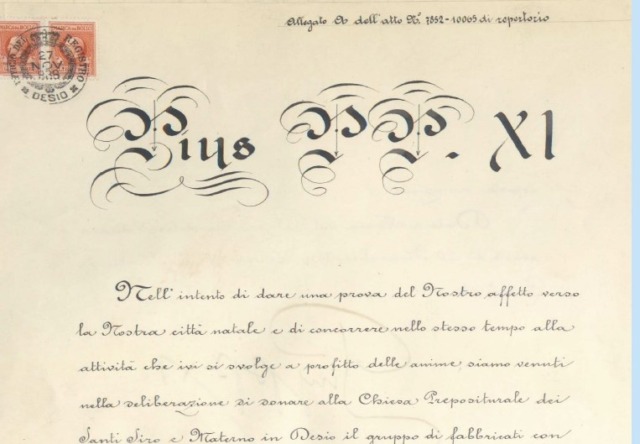 Allegato A dell'atto N.º 7852-10065 di repertorio
27
NOV
DESIO
Pius PP. XI
Nell'intento di dare una prova del Nostro affetto verso
la Nostra città natale e di concorrere nello stesso tempo alla
attività che ivi si svolge a profitto delle anime, siamo venuti
nella deliberazione di donare alla Chiesa Prepositurale dei
Santi Siro e Materno in Desio il gruppo di fabbricati con